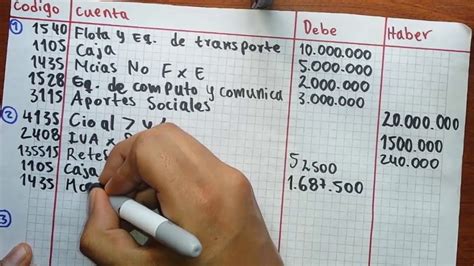 Codigo Cuenta Debe Haber
1 1540 Flota y Eq. de transporte 10.000.000
1105 Caja 5.000.000
1435 Mcias No F x E 2.000.000
1528 Eq. de computo y comunica 3.000.000
3115 Aportes Sociales 20.000.000
2 4135 Cio al > 1500.000
2408 IVA x 240.000
135515 Retef 52500
1105 Caja 1.687.500
1435
3